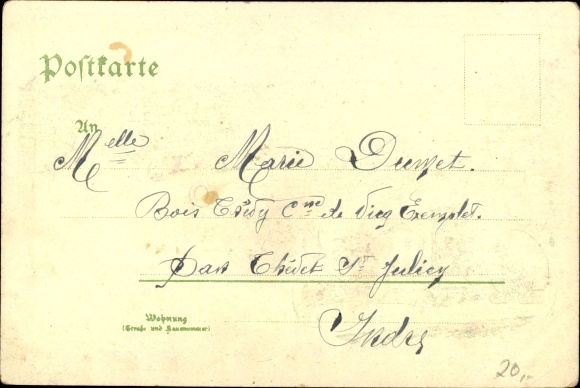 Postkarte
An
Melle Marie Dumet.
Bois Thédy Cne de Vicq Exemplet.
Par Thevet St Julien
Indre
Wohnung
(Straße und Hausnummer)
20,-